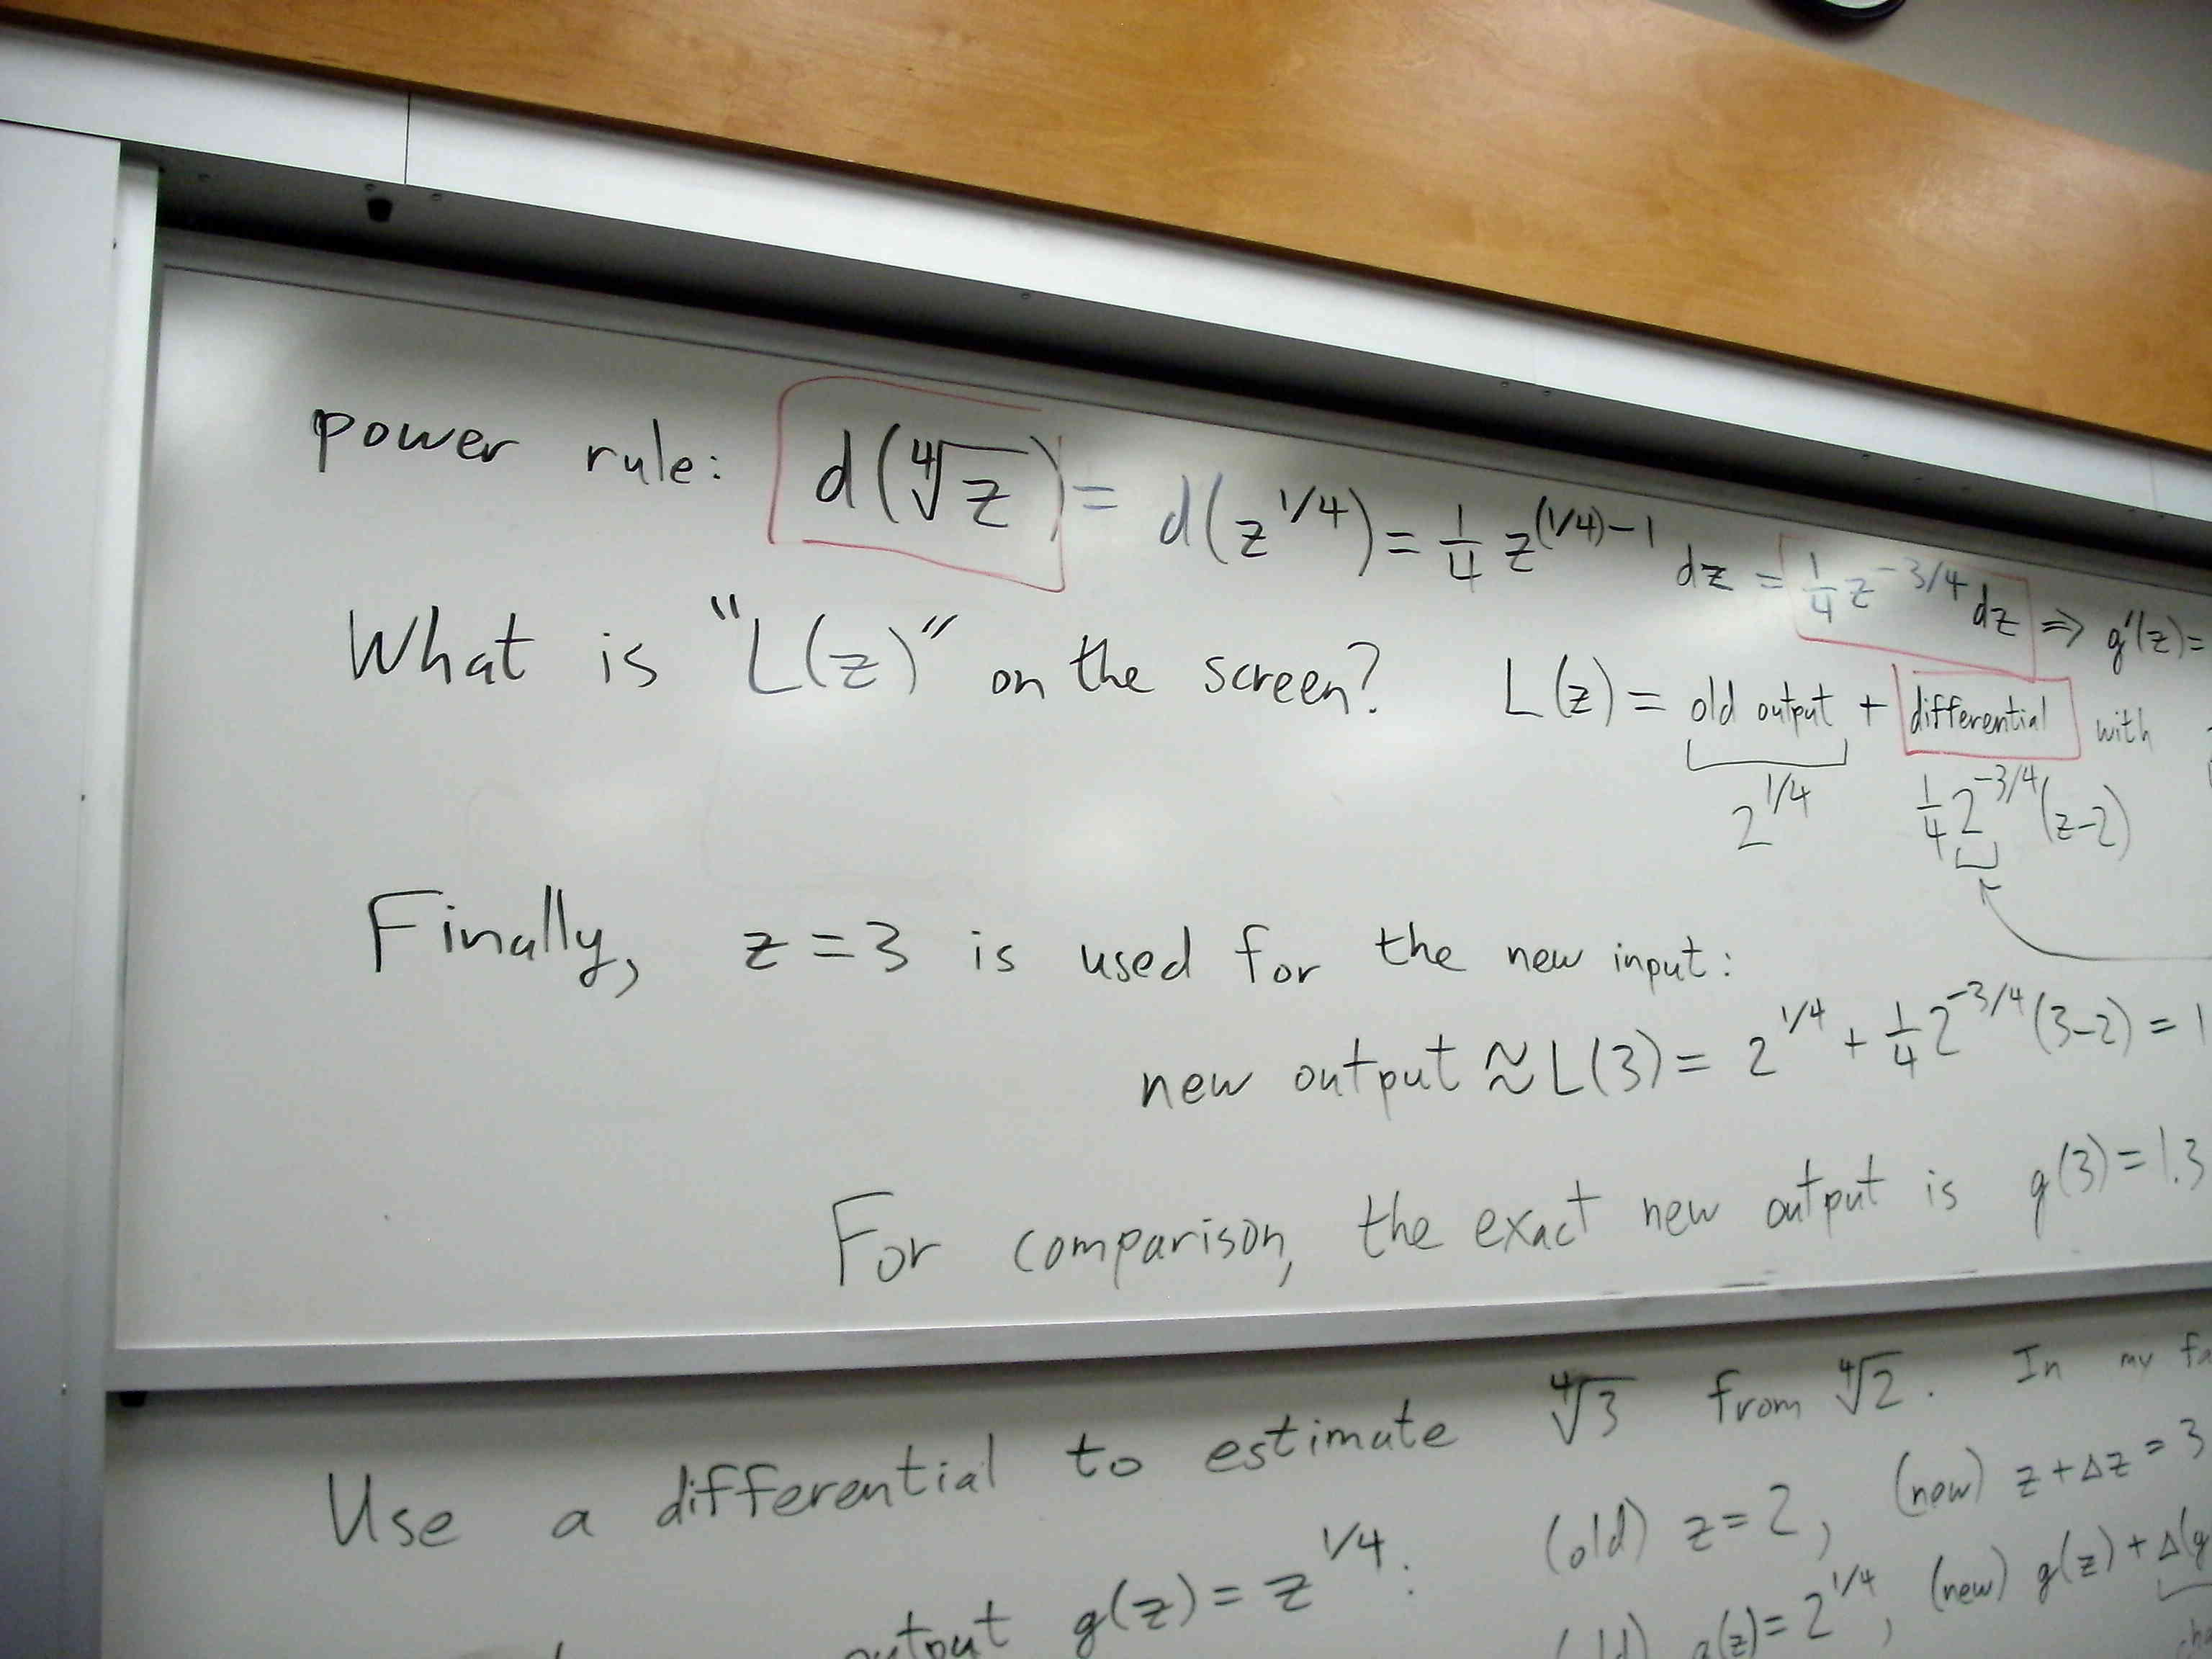 power rule: d(∜z) = d(z^1/4) = 1/4 z^(1/4)-1 dz = 1/4 z^-3/4 dz ⇒ g'(z)=
What is "L(z)" on the screen? L(z) = old output + differential with
2^1/4 1/4 2^-3/4 (z-2)
Finally, z = 3 is used for the new input:
new output ≈ L(3) = 2^1/4 + 1/4 2^-3/4 (3-2) = 1
For comparison, the exact new output is g(3) = 1.3
Use a differential to estimate ∜3 from ∜2. In my fa
(old) z = 2, (new) z + Δz = 3
output g(z) = z^1/4:
g(z) = 2^1/4, (new) g(z) + Δ(g